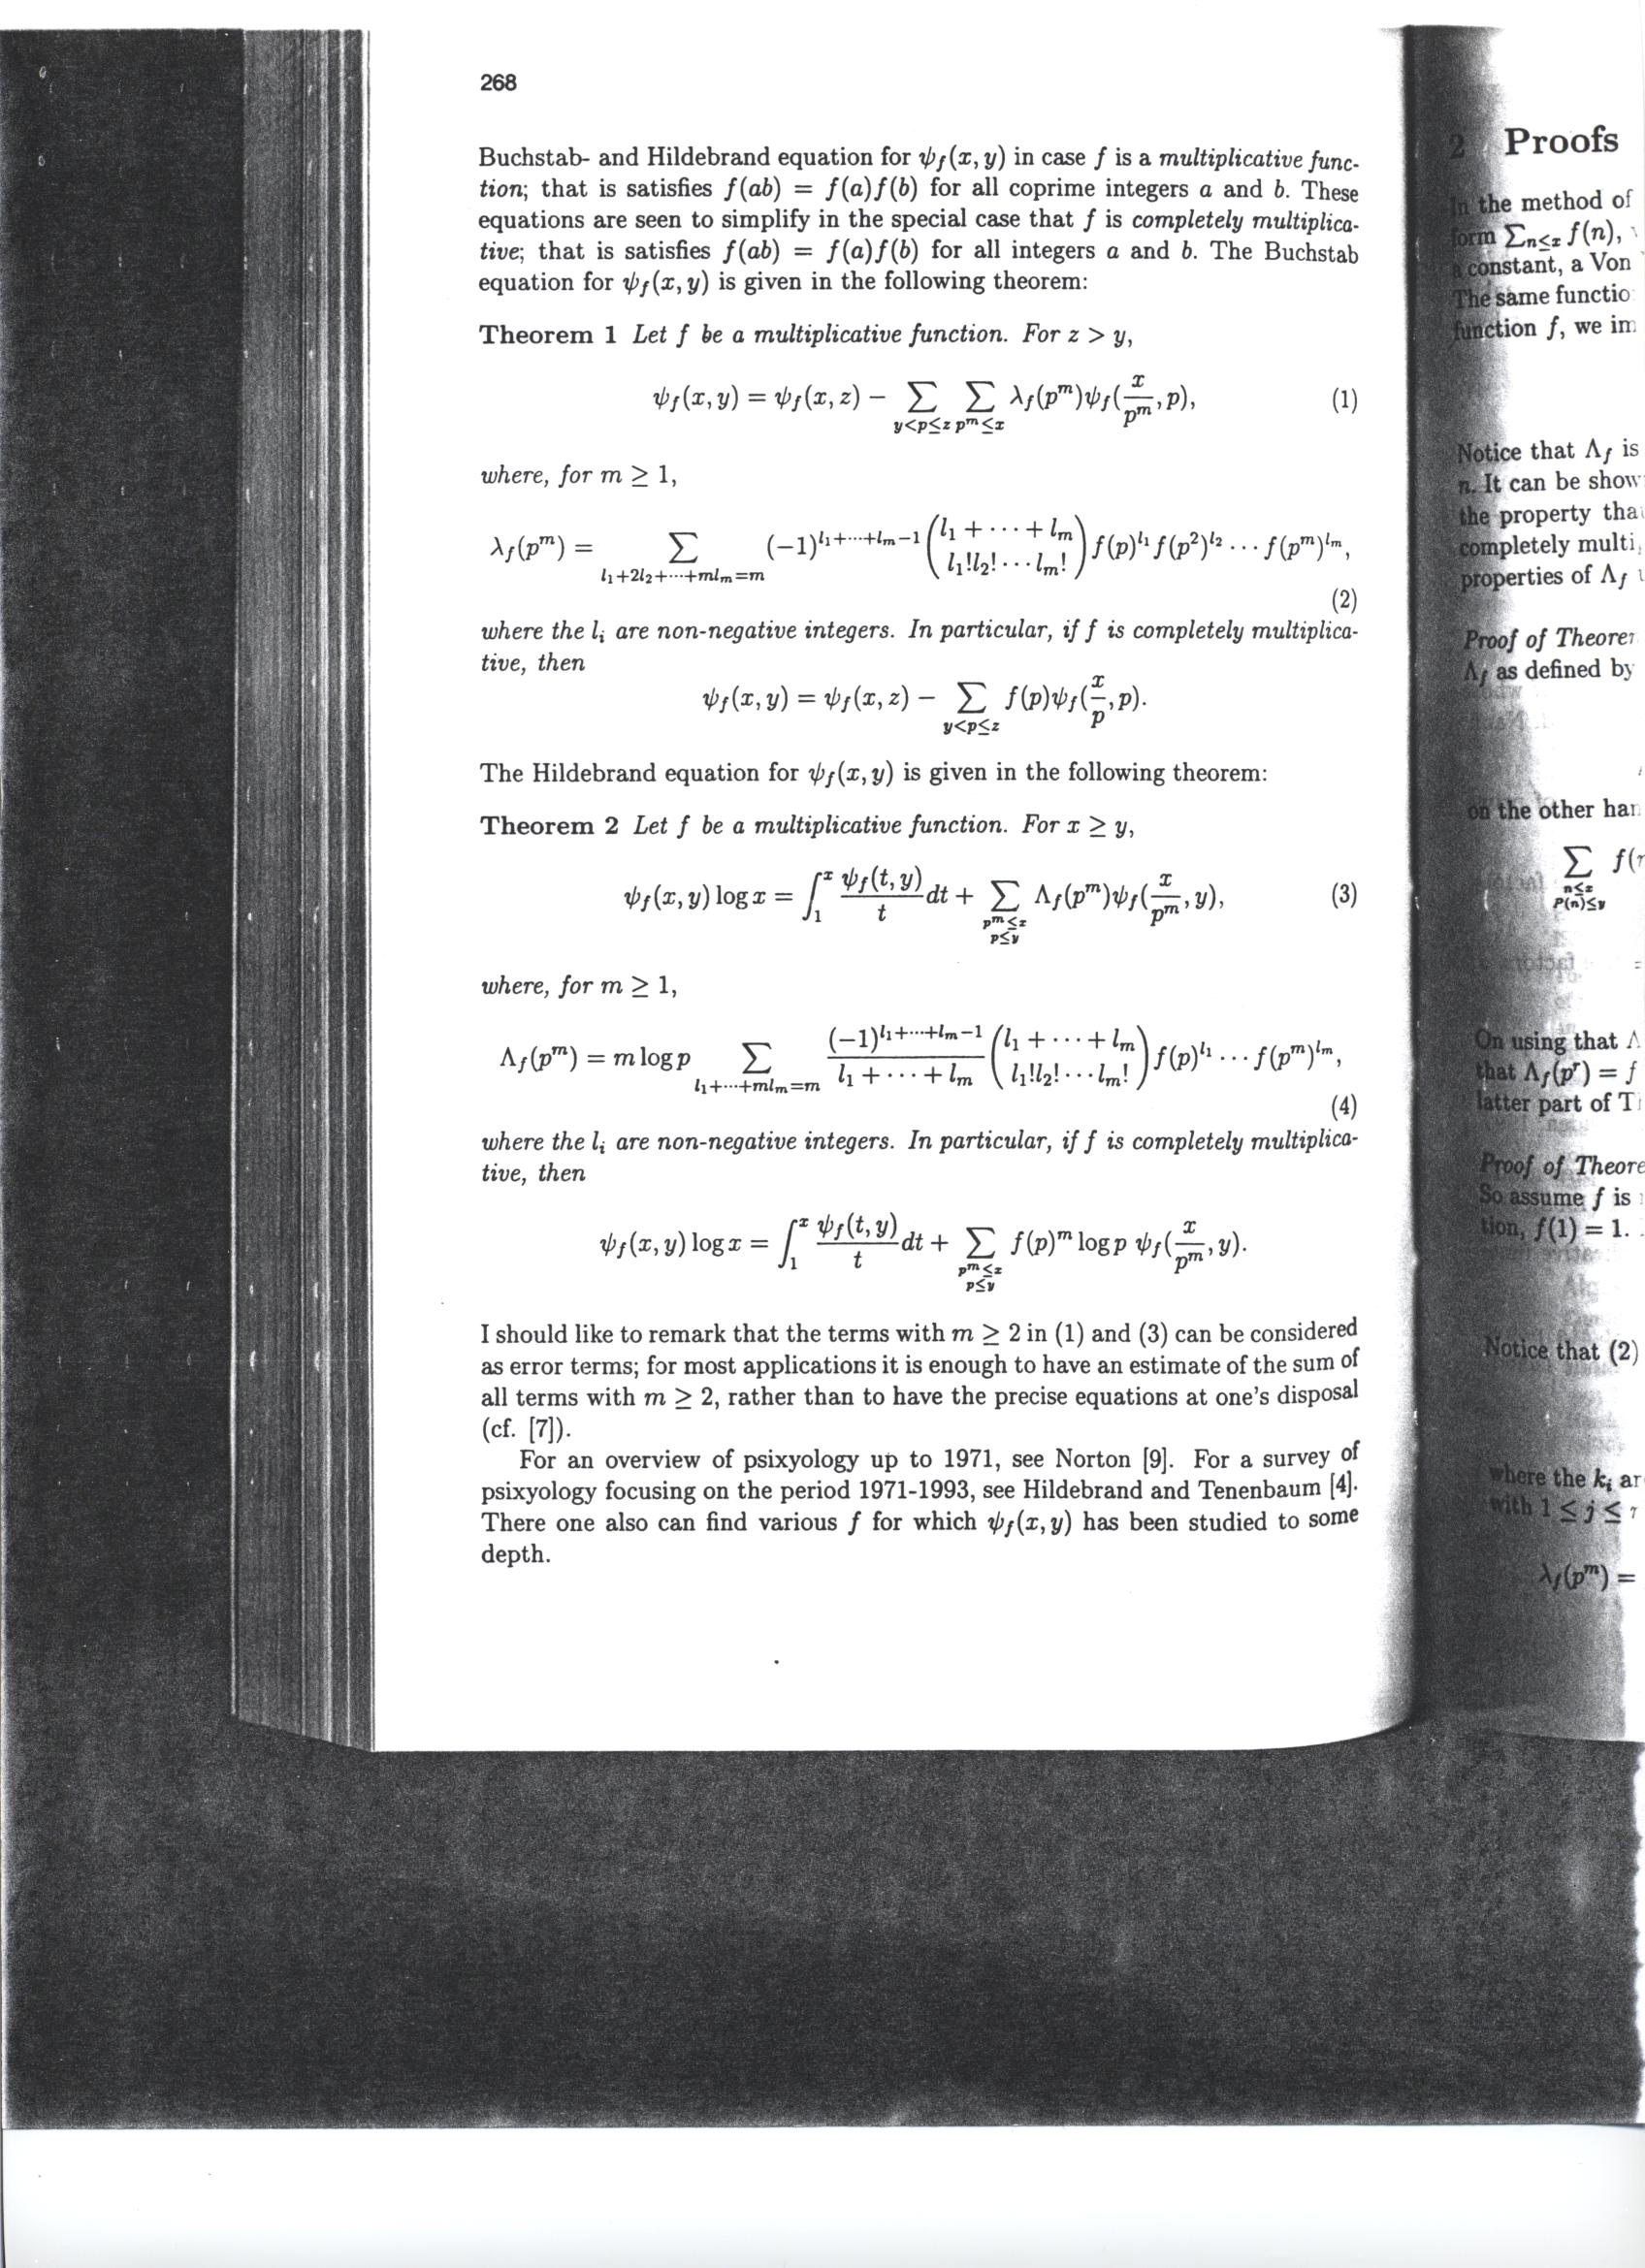 268
Buchstab- and Hildebrand equation for ψ_f(x, y) in case f is a multiplicative func-
tion; that is satisfies f(ab) = f(a)f(b) for all coprime integers a and b. These
equations are seen to simplify in the special case that f is completely multiplica-
tive; that is satisfies f(ab) = f(a)f(b) for all integers a and b. The Buchstab
equation for ψ_f(x, y) is given in the following theorem:
Theorem 1 Let f be a multiplicative function. For z > y,
ψ_f(x, y) = ψ_f(x, z) − ∑_{y<p≤z} ∑_{p^m≤x} λ_f(p^m)ψ_f(x/p^m, p), (1)
where, for m ≥ 1,
λ_f(p^m) = ∑_{l_1+2l_2+⋯+ml_m=m} (−1)^{l_1+⋯+l_m−1} \binom{l_1 + ⋯ + l_m}{l_1!l_2! ⋯ l_m!} f(p)^{l_1} f(p^2)^{l_2} ⋯ f(p^m)^{l_m},
(2)
where the l_i are non-negative integers. In particular, if f is completely multiplica-
tive, then
ψ_f(x, y) = ψ_f(x, z) − ∑_{y<p≤z} f(p)ψ_f(x/p, p).
The Hildebrand equation for ψ_f(x, y) is given in the following theorem:
Theorem 2 Let f be a multiplicative function. For x ≥ y,
ψ_f(x, y) log x = ∫_1^x ψ_f(t, y)/t dt + ∑_{p^m≤x, p≤y} Λ_f(p^m)ψ_f(x/p^m, y), (3)
where, for m ≥ 1,
Λ_f(p^m) = m log p ∑_{l_1+⋯+ml_m=m} (−1)^{l_1+⋯+l_m−1}/(l_1 + ⋯ + l_m) \binom{l_1 + ⋯ + l_m}{l_1!l_2! ⋯ l_m!} f(p)^{l_1} ⋯ f(p^m)^{l_m},
(4)
where the l_i are non-negative integers. In particular, if f is completely multiplica-
tive, then
ψ_f(x, y) log x = ∫_1^x ψ_f(t, y)/t dt + ∑_{p^m≤x, p≤y} f(p)^m log p ψ_f(x/p^m, y).
I should like to remark that the terms with m ≥ 2 in (1) and (3) can be considered
as error terms; for most applications it is enough to have an estimate of the sum of
all terms with m ≥ 2, rather than to have the precise equations at one's disposal
(cf. [7]).
For an overview of psixyology up to 1971, see Norton [9]. For a survey of
psixyology focusing on the period 1971-1993, see Hildebrand and Tenenbaum [4].
There one also can find various f for which ψ_f(x, y) has been studied to some
depth.
2 Proofs
In the method of
form ∑_{n≤x} f(n),
a constant, a Von
The same functio
function f, we im
Notice that Λ_f is
n. It can be show
the property tha
completely multi
properties of Λ_f
Proof of Theorem
Λ_f as defined by
on the other han
∑_{n≤x, P(n)≤y} f(
On using that Λ
that Λ_f(p^r) = f
latter part of T
Proof of Theore
So assume f is
tion, f(1) = 1.
Notice that (2)
where the k_i ar
with 1 ≤ j ≤
λ_f(p^m) =